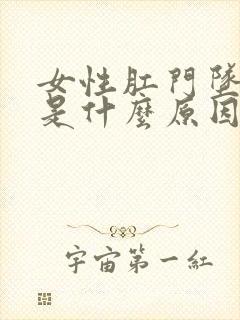 女性肛門墜
是什麼原因
宇宙第一紅